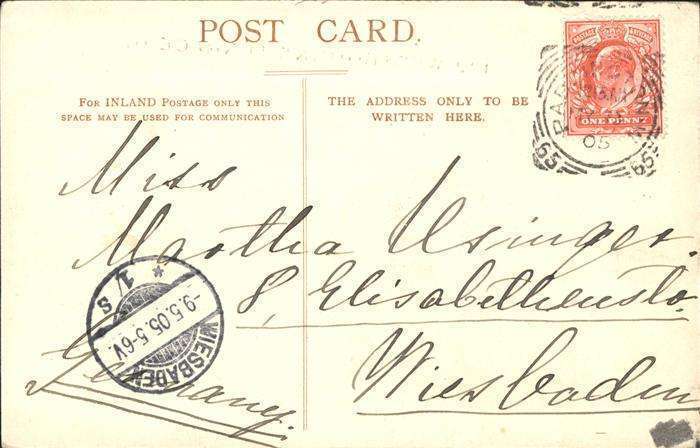 POST CARD.
FOR INLAND POSTAGE ONLY THIS
SPACE MAY BE USED FOR COMMUNICATION
THE ADDRESS ONLY TO BE
WRITTEN HERE.
POSTAGE REVENUE
ONE PENNY
05
65 65
Miss
Martha Usinger.
8, Elisabethenstr.
Wiesbaden
Germany.
WIESBADEN
-9.5.05.5-6V.
* 1/s